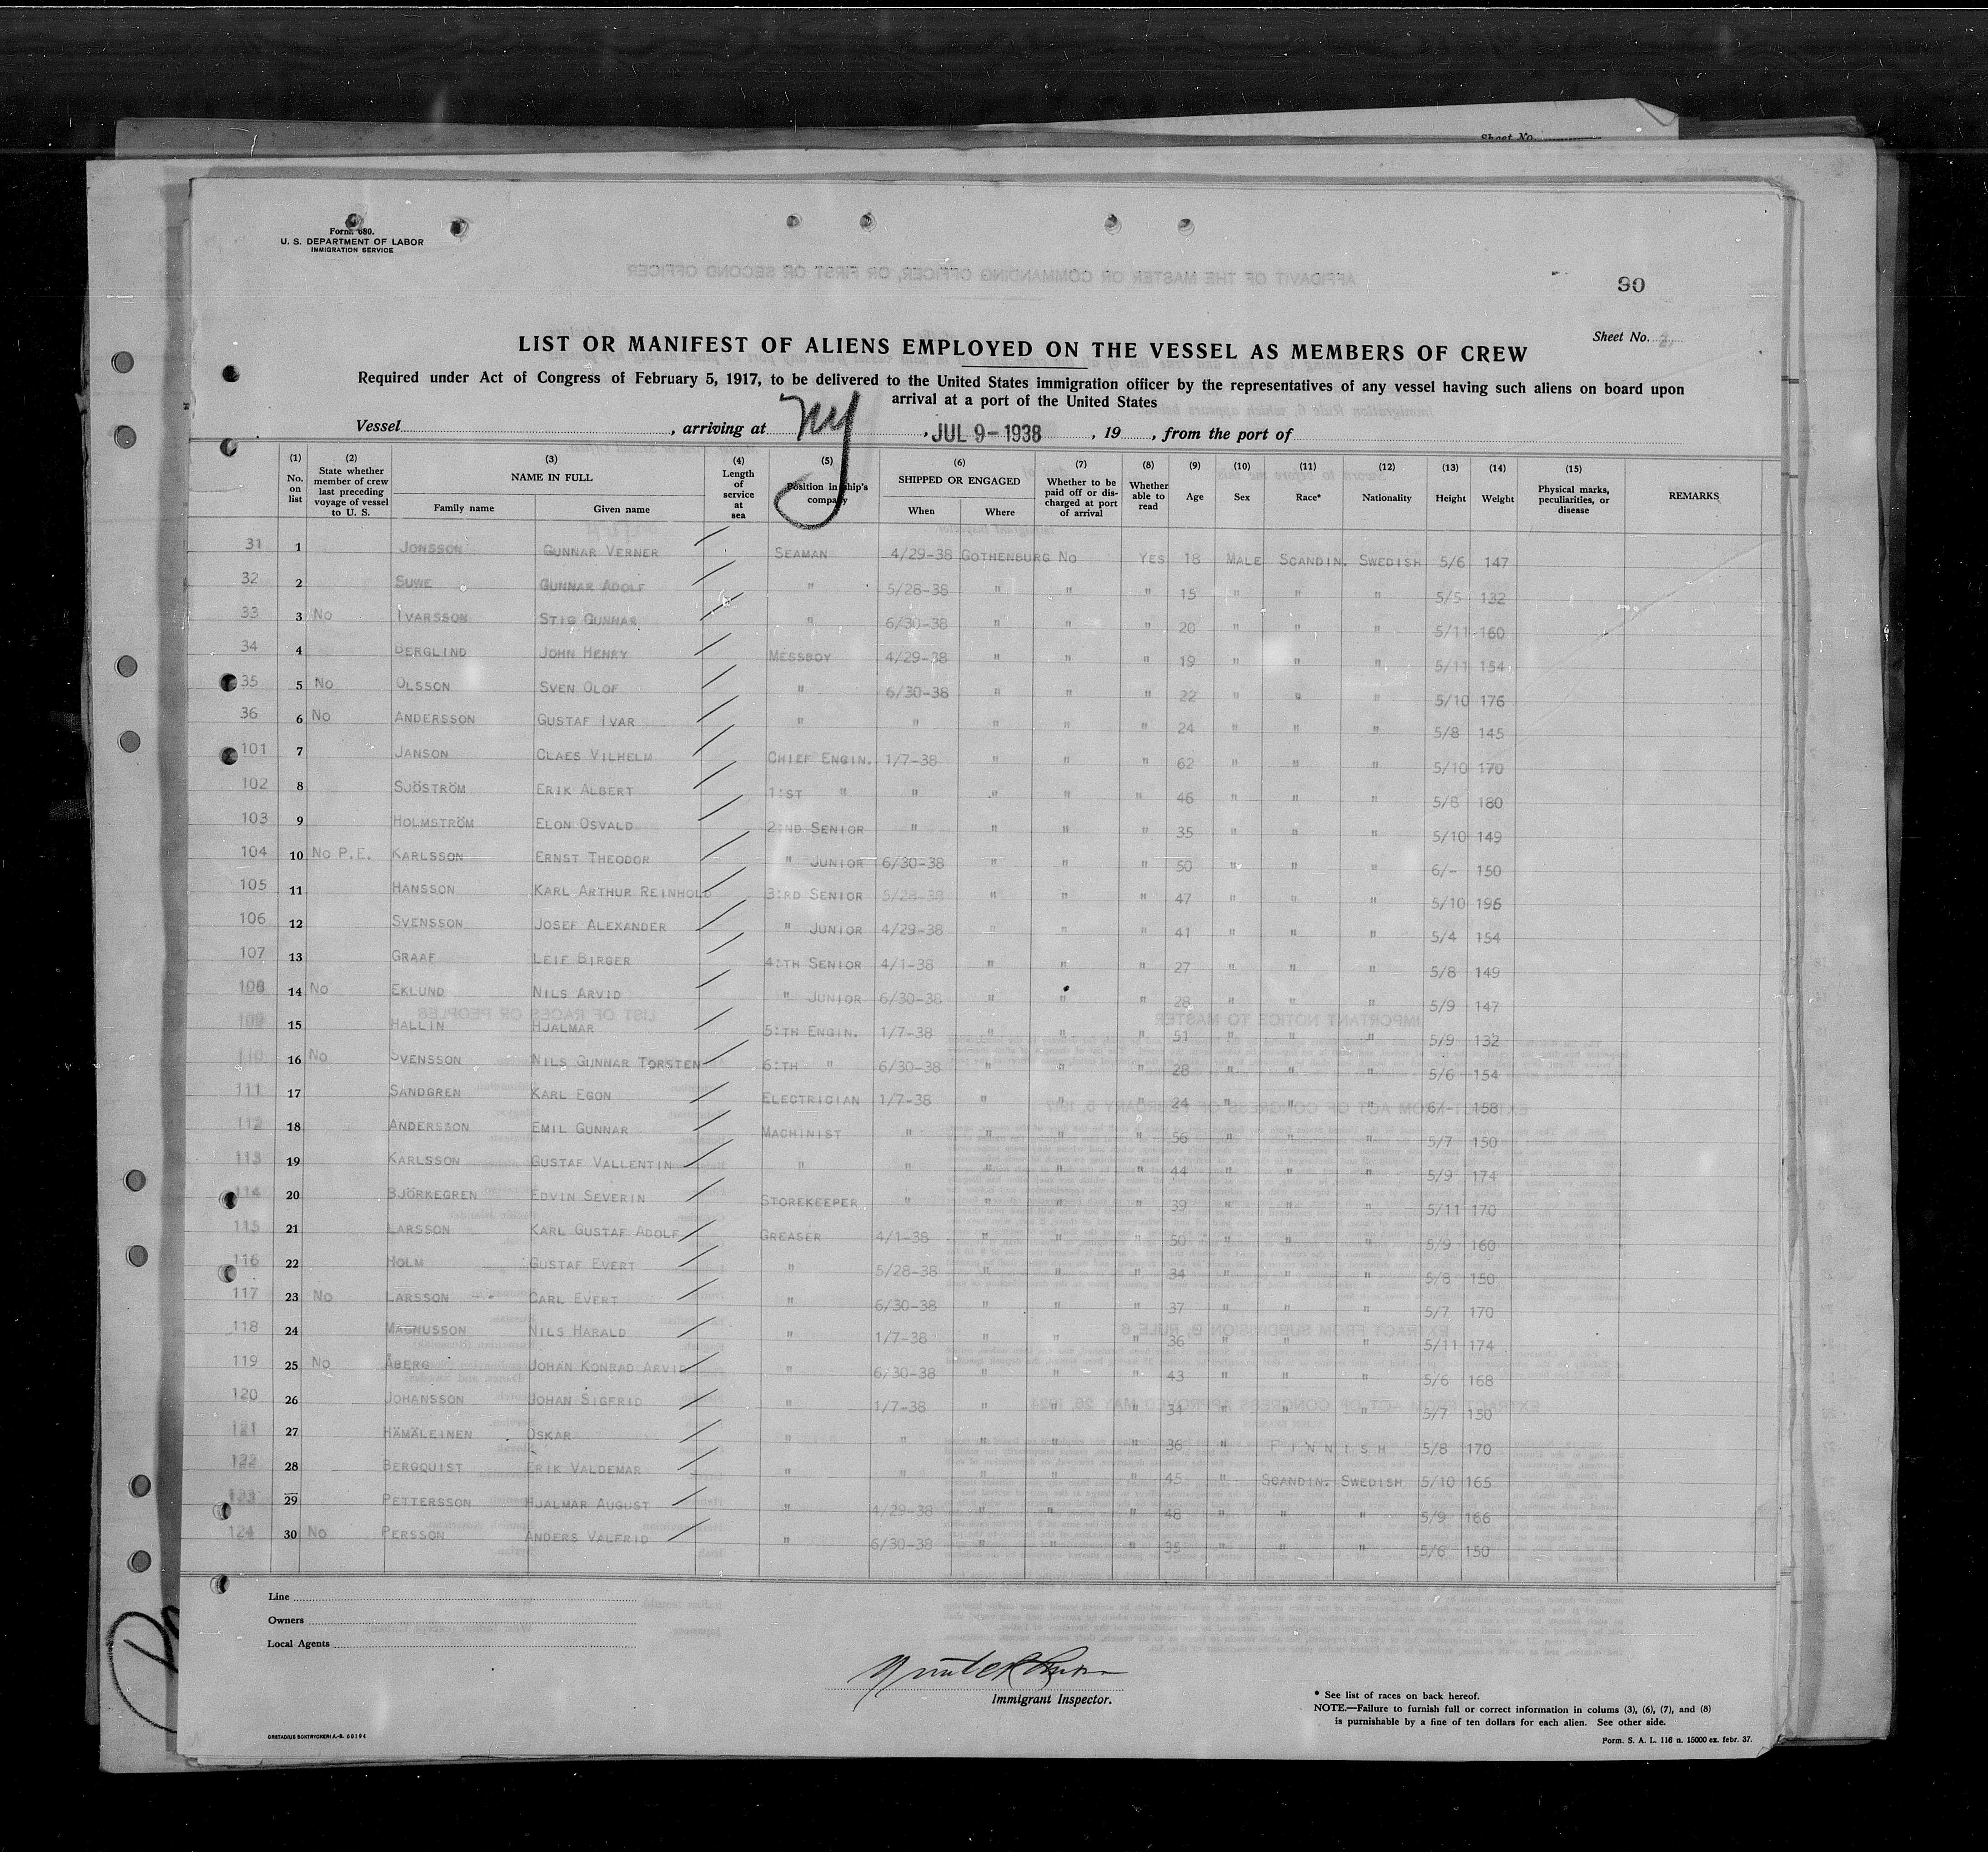 Sheet No.
Form 680.
U. S. DEPARTMENT OF LABOR
IMMIGRATION SERVICE
90
Sheet No. 2.
LIST OR MANIFEST OF ALIENS EMPLOYED ON THE VESSEL AS MEMBERS OF CREW
Required under Act of Congress of February 5, 1917, to be delivered to the United States immigration officer by the representatives of any vessel having such aliens on board upon
arrival at a port of the United States
Vessel , arriving at NY , JUL 9-1938 , 19 , from the port of
(1) No. on list (2) State whether member of crew last preceding voyage of vessel to U. S. (3) NAME IN FULL Family name Given name (4) Length of service at sea (5) Position in ship's company (6) SHIPPED OR ENGAGED When Where (7) Whether to be paid off or discharged at port of arrival (8) Whether able to read (9) Age (10) Sex (11) Race* (12) Nationality (13) Height (14) Weight (15) Physical marks, peculiarities, or disease REMARKS
31 1 JONSSON GUNNAR VERNER SEAMAN 4/29-38 GOTHENBURG NO YES 18 MALE SCANDIN. SWEDISH 5/6 147
32 2 SUWE GUNNAR ADOLF " 5/28-38 " " " 15 " " " 5/5 132
33 3 NO IVARSSON STIG GUNNAR " 6/30-38 " " " 20 " " " 5/11 160
34 4 BERGLIND JOHN HENRY MESSBOY 4/29-38 " " " 19 " " " 5/11 154
35 5 NO OLSSON SVEN OLOF " 6/30-38 " " " 22 " " " 5/10 176
36 6 NO ANDERSSON GUSTAF IVAR " " " " " 24 " " " 5/8 145
101 7 JANSON CLAES VILHELM CHIEF ENGIN. 1/7-38 " " " 62 " " " 5/10 170
102 8 SJÖSTRÖM ERIK ALBERT 1:ST " " " " " 46 " " " 5/8 180
103 9 HOLMSTRÖM ELON OSVALD 2:ND SENIOR " " " " 35 " " " 5/10 149
104 10 NO P.E. KARLSSON ERNST THEODOR " JUNIOR 6/30-38 " " " 50 " " " 6/- 150
105 11 HANSSON KARL ARTHUR REINHOLD 3:RD SENIOR 5/28-38 " " " 47 " " " 5/10 196
106 12 SVENSSON JOSEF ALEXANDER " JUNIOR 4/29-38 " " " 41 " " " 5/4 154
107 13 GRAAF LEIF BIRGER 4:TH SENIOR 4/1-38 " " " 27 " " " 5/8 149
108 14 NO EKLUND NILS ARVID " JUNIOR 6/30-38 " " " 28 " " " 5/9 147
109 15 HALLIN HJALMAR 5:TH ENGIN. 1/7-38 " " " 51 " " " 5/9 132
110 16 NO SVENSSON NILS GUNNAR TORSTEN 6:TH " 6/30-38 " " " 28 " " " 5/6 154
111 17 SANDGREN KARL EGON ELECTRICIAN 1/7-38 " " " 24 " " " 6/- 158
112 18 ANDERSSON EMIL GUNNAR MACHINIST " " " " 56 " " " 5/7 150
113 19 KARLSSON GUSTAF VALLENTIN " " " " " 44 " " " 5/9 174
114 20 BJÖRKEGREN EDVIN SEVERIN STOREKEEPER " " " " 39 " " " 5/11 170
115 21 LARSSON KARL GUSTAF ADOLF GREASER 4/1-38 " " " 50 " " " 5/9 160
116 22 HOLM GUSTAF EVERT " 5/28-38 " " " 34 " " " 5/8 150
117 23 NO LARSSON CARL EVERT " 6/30-38 " " " 37 " " " 5/7 170
118 24 MAGNUSSON NILS HARALD " 1/7-38 " " " 36 " " " 5/11 174
119 25 NO ÅBERG JOHAN KONRAD ARVID " 6/30-38 " " " 43 " " " 5/6 168
120 26 JOHANSSON JOHAN SIGFRID " 1/7-38 " " " 34 " " " 5/7 150
121 27 HÄMÄLEINEN OSKAR " " " " " 36 " FINNISH 5/8 170
122 28 BERGQUIST ERIK VALDEMAR " " " " " 45 " SCANDIN. SWEDISH 5/10 165
123 29 PETTERSSON HJALMAR AUGUST " 4/29-38 " " " 48 " " " 5/9 166
124 30 NO PERSSON ANDERS VALFRID " 6/30-38 " " " 35 " " " 5/6 150
Line
Owners
Local Agents
Immigrant Inspector.
* See list of races on back hereof.
NOTE.—Failure to furnish full or correct information in colums (3), (6), (7), and (8)
is purnishable by a fine of ten dollars for each alien. See other side.
Form. S. A. L. 116 n. 15000 ex. febr. 37.